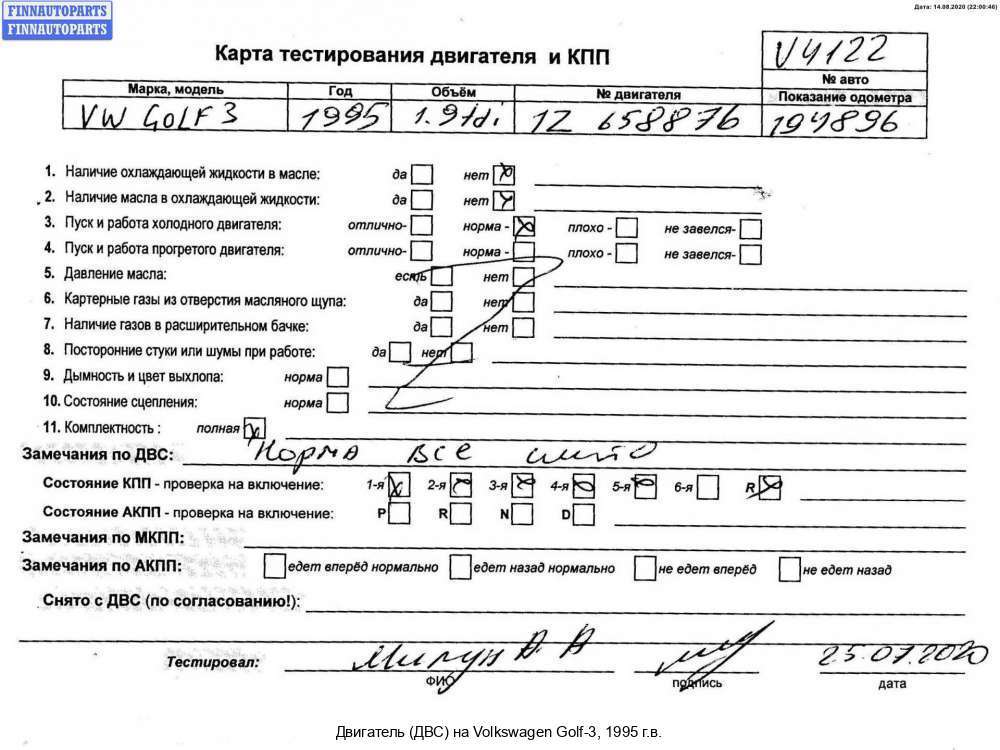 Дата: 14.08.2020 (22:00:46)
FINNAUTOPARTS
FINNAUTOPARTS
Карта тестирования двигателя и КПП
V4122
№ авто
Марка, модель Год Объём № двигателя Показание одометра
VW GOLF 3 1995 1.9 tdi 1Z 658876 194896
1. Наличие охлаждающей жидкости в масле: да нет
2. Наличие масла в охлаждающей жидкости: да нет
3. Пуск и работа холодного двигателя: отлично- норма - плохо - не завелся-
4. Пуск и работа прогретого двигателя: отлично- норма - плохо - не завелся-
5. Давление масла: есть нет
6. Картерные газы из отверстия масляного щупа: да нет
7. Наличие газов в расширительном бачке: да нет
8. Посторонние стуки или шумы при работе: да нет
9. Дымность и цвет выхлопа: норма
10. Состояние сцепления: норма
11. Комплектность : полная
Замечания по ДВС: Норма все
Состояние КПП - проверка на включение: 1-я 2-я 3-я 4-я 5-я 6-я R
Состояние АКПП - проверка на включение: P R N D
Замечания по МКПП:
Замечания по АКПП: едет вперёд нормально едет назад нормально не едет вперёд не едет назад
Снято с ДВС (по согласованию!):
Тестировал: Милун А А 25.07.2020
ФИО подпись дата
Двигатель (ДВС) на Volkswagen Golf-3, 1995 г.в.